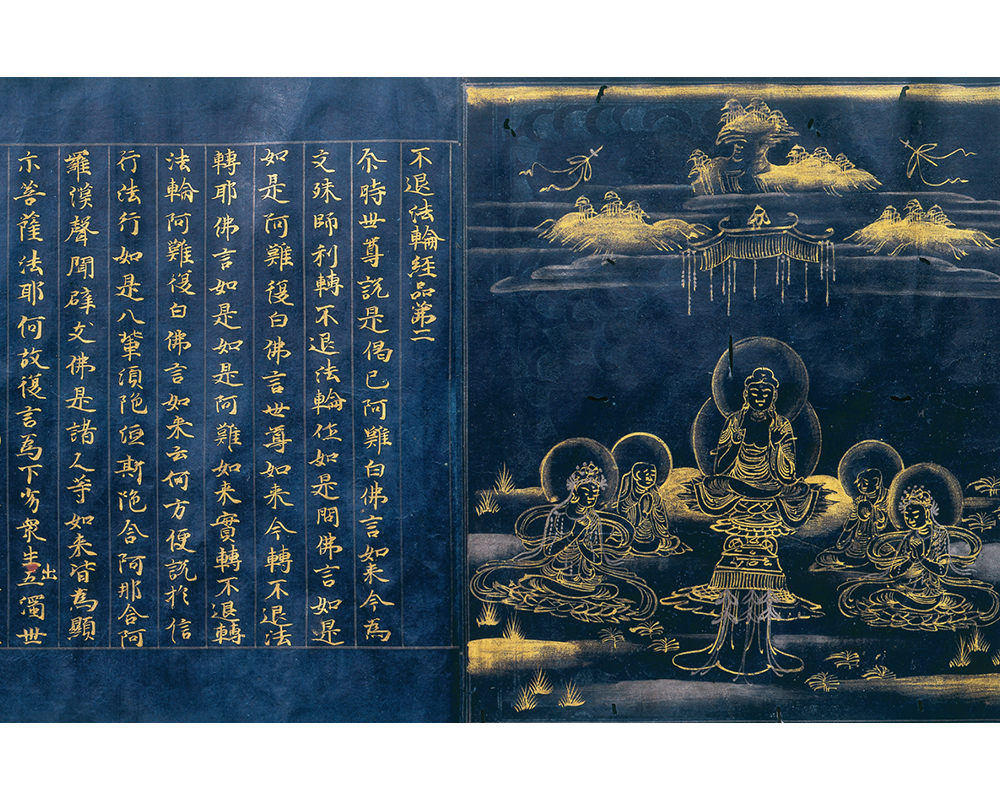 不退法輪経品第二
尒時世尊説是偈已阿難白佛言如来今為
文殊師利轉不退法輪住如是問佛言如是
如是阿難復白佛言世尊如来今轉不退法
轉耶佛言如是如是阿難如来實轉不退轉
法輪阿難復白佛言如来云何方便説於信
行法行如是八輩須陁洹斯陁含阿那含阿
羅漢聲聞辟支佛是諸人等如来皆為顯
示菩薩法耶何故復言為下劣衆生出五濁世